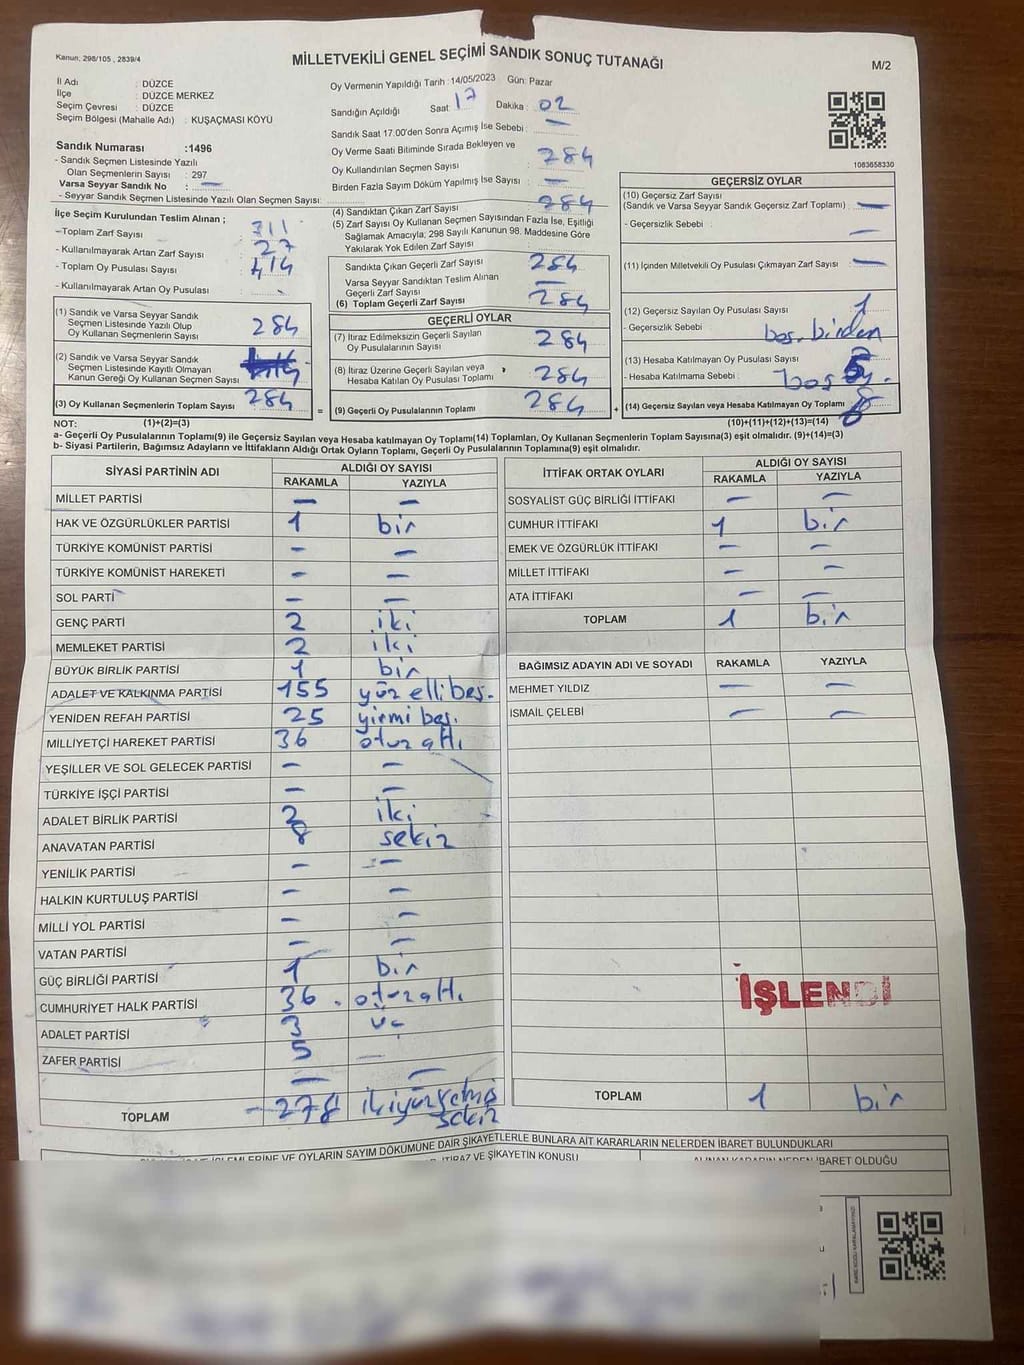 Kanun; 298/105 , 2839/4
MİLLETVEKİLİ GENEL SEÇİMİ SANDIK SONUÇ TUTANAĞI
M/2
İl Adı : DÜZCE
İlçe : DÜZCE MERKEZ
Seçim Çevresi : DÜZCE
Seçim Bölgesi (Mahalle Adı) : KUŞAÇMASI KÖYÜ
Sandık Numarası :1496
- Sandık Seçmen Listesinde Yazılı
Olan Seçmenlerin Sayısı : 297
Varsa Seyyar Sandık No : —
- Seyyar Sandık Seçmen Listesinde Yazılı Olan Seçmen Sayısı:
Oy Vermenin Yapıldığı Tarih : 14/05/2023 Gün: Pazar
Sandığın Açıldığı Saat : 17 Dakika : 02
Sandık Saat 17.00'den Sonra Açımış İse Sebebi : —
Oy Verme Saati Bitiminde Sırada Bekleyen ve
Oy Kullandırılan Seçmen Sayısı : 284
Birden Fazla Sayım Döküm Yapılmış İse Sayısı : —
1083658330
İlçe Seçim Kurulundan Teslim Alınan ;
-Toplam Zarf Sayısı 311
- Kullanılmayarak Artan Zarf Sayısı 27
- Toplam Oy Pusulası Sayısı 414
- Kullanılmayarak Artan Oy Pusulası
(1) Sandık ve Varsa Seyyar Sandık
Seçmen Listesinde Yazılı Olup
Oy Kullanan Seçmenlerin Sayısı 284
(2) Sandık ve Varsa Seyyar Sandık
Seçmen Listesinde Kayıtlı Olmayan
Kanun Gereği Oy Kullanan Seçmen Sayısı
(3) Oy Kullanan Seçmenlerin Toplam Sayısı 284 =
(4) Sandıktan Çıkan Zarf Sayısı 284
(5) Zarf Sayısı Oy Kullanan Seçmen Sayısından Fazla İse, Eşitliği
Sağlamak Amacıyla; 298 Sayılı Kanunun 98. Maddesine Göre
Yakılarak Yok Edilen Zarf Sayısı
Sandıkta Çıkan Geçerli Zarf Sayısı 284
Varsa Seyyar Sandıktan Teslim Alınan
Geçerli Zarf Sayısı —
(6) Toplam Geçerli Zarf Sayısı 284
GEÇERLİ OYLAR
(7) İtiraz Edilmeksizin Geçerli Sayılan
Oy Pusulalarının Sayısı 284
(8) İtiraz Üzerine Geçerli Sayılan veya
Hesaba Katılan Oy Pusulası Toplamı 284
(9) Geçerli Oy Pusulalarının Toplamı 284 +
GEÇERSİZ OYLAR
(10) Geçersiz Zarf Sayısı
(Sandık ve Varsa Seyyar Sandık Geçersiz Zarf Toplamı) : —
- Geçersizlik Sebebi : —
(11) İçinden Milletvekili Oy Pusulası Çıkmayan Zarf Sayısı : —
(12) Geçersiz Sayılan Oy Pusulası Sayısı : 1
- Geçersizlik Sebebi : birden
(13) Hesaba Katılmayan Oy Pusulası Sayısı : 5
- Hesaba Katılmama Sebebi : boş oy.
(14) Geçersiz Sayılan veya Hesaba Katılmayan Oy Toplamı
NOT: (1)+(2)=(3) (10)+(11)+(12)+(13)=(14)
a- Geçerli Oy Pusulaları Toplamı(9) ile Geçersiz Sayılan veya Hesaba katılmayan Oy Toplamı(14) Toplamları, Oy Kullanan Seçmenlerin Toplam Sayısına(3) eşit olmalıdır. (9)+(14)=(3)
b- Siyasi Partilerin, Bağımsız Adayların ve İttifakların Aldığı Ortak Oyların Toplamı, Geçerli Oy Pusulalarının Toplamına(9) eşit olmalıdır.
SİYASİ PARTİNİN ADI ALDIĞI OY SAYISI
RAKAMLA YAZIYLA
MİLLET PARTİSİ — —
HAK VE ÖZGÜRLÜKLER PARTİSİ 1 bir
TÜRKİYE KOMÜNİST PARTİSİ — —
TÜRKİYE KOMÜNİST HAREKETİ — —
SOL PARTİ — —
GENÇ PARTİ 2 iki
MEMLEKET PARTİSİ 2 iki
BÜYÜK BİRLİK PARTİSİ 1 bir
ADALET VE KALKINMA PARTİSİ 155 yüz elli beş.
YENİDEN REFAH PARTİSİ 25 yirmi beş.
MİLLİYETÇİ HAREKET PARTİSİ 36 otuz altı
YEŞİLLER VE SOL GELECEK PARTİSİ — —
TÜRKİYE İŞÇİ PARTİSİ — —
ADALET BİRLİK PARTİSİ 2 iki
ANAVATAN PARTİSİ 8 sekiz
YENİLİK PARTİSİ — —
HALKIN KURTULUŞ PARTİSİ — —
MİLLİ YOL PARTİSİ — —
VATAN PARTİSİ — —
GÜÇ BİRLİĞİ PARTİSİ 1 bir
CUMHURİYET HALK PARTİSİ 36 . otuz altı
ADALET PARTİSİ 3 üç
ZAFER PARTİSİ 5 —
— —
TOPLAM 278 ikiyüzyetmiş
sekiz
İTTİFAK ORTAK OYLARI ALDIĞI OY SAYISI
RAKAMLA YAZIYLA
SOSYALIST GÜÇ BİRLİĞİ İTTİFAKI — —
CUMHUR İTTİFAKI 1 bir
EMEK VE ÖZGÜRLÜK İTTİFAKI — —
MİLLET İTTİFAKI — —
ATA İTTİFAKI — —
TOPLAM 1 bir
BAĞIMSIZ ADAYIN ADI VE SOYADI RAKAMLA YAZIYLA
MEHMET YILDIZ — —
İSMAİL ÇELEBİ — —
İŞLENDİ
TOPLAM 1 bir
İŞLEMLERİNE VE OYLARIN SAYIM DÖKÜMÜNE DAİR ŞİKAYETLERLE BUNLARA AİT KARARLARIN NELERDEN İBARET BULUNDUKLARI
İTİRAZ VE ŞİKAYETİN KONUSU
ALINAN KARARIN NEDEN İBARET OLDUĞU